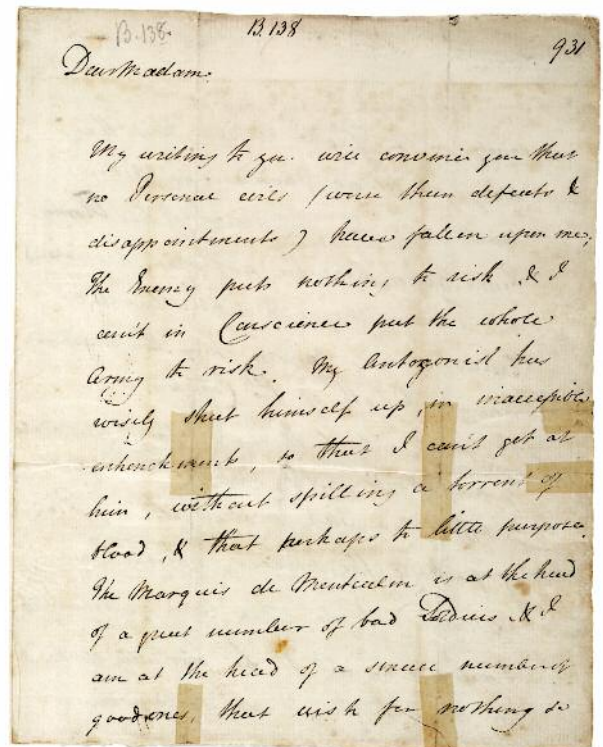 B.138. B.138
931
Dear Madam.
My writing to you will convince you that
no Personal evils (worse than defeats &
disappointments) have fallen upon me;
the Enemy puts nothing to risk & I
can't in Conscience put the whole
Army to risk. My Antagonist has
wisely shut himself up, in inaccessible
entrenchments, so that I can't get at
him, without spilling a torrent of
blood, & that perhaps to little purpose.
The Marquis de Montcalm is at the head
of a great number of bad Soldiers & I
am at the head of a small number of
good ones, that wish for nothing so